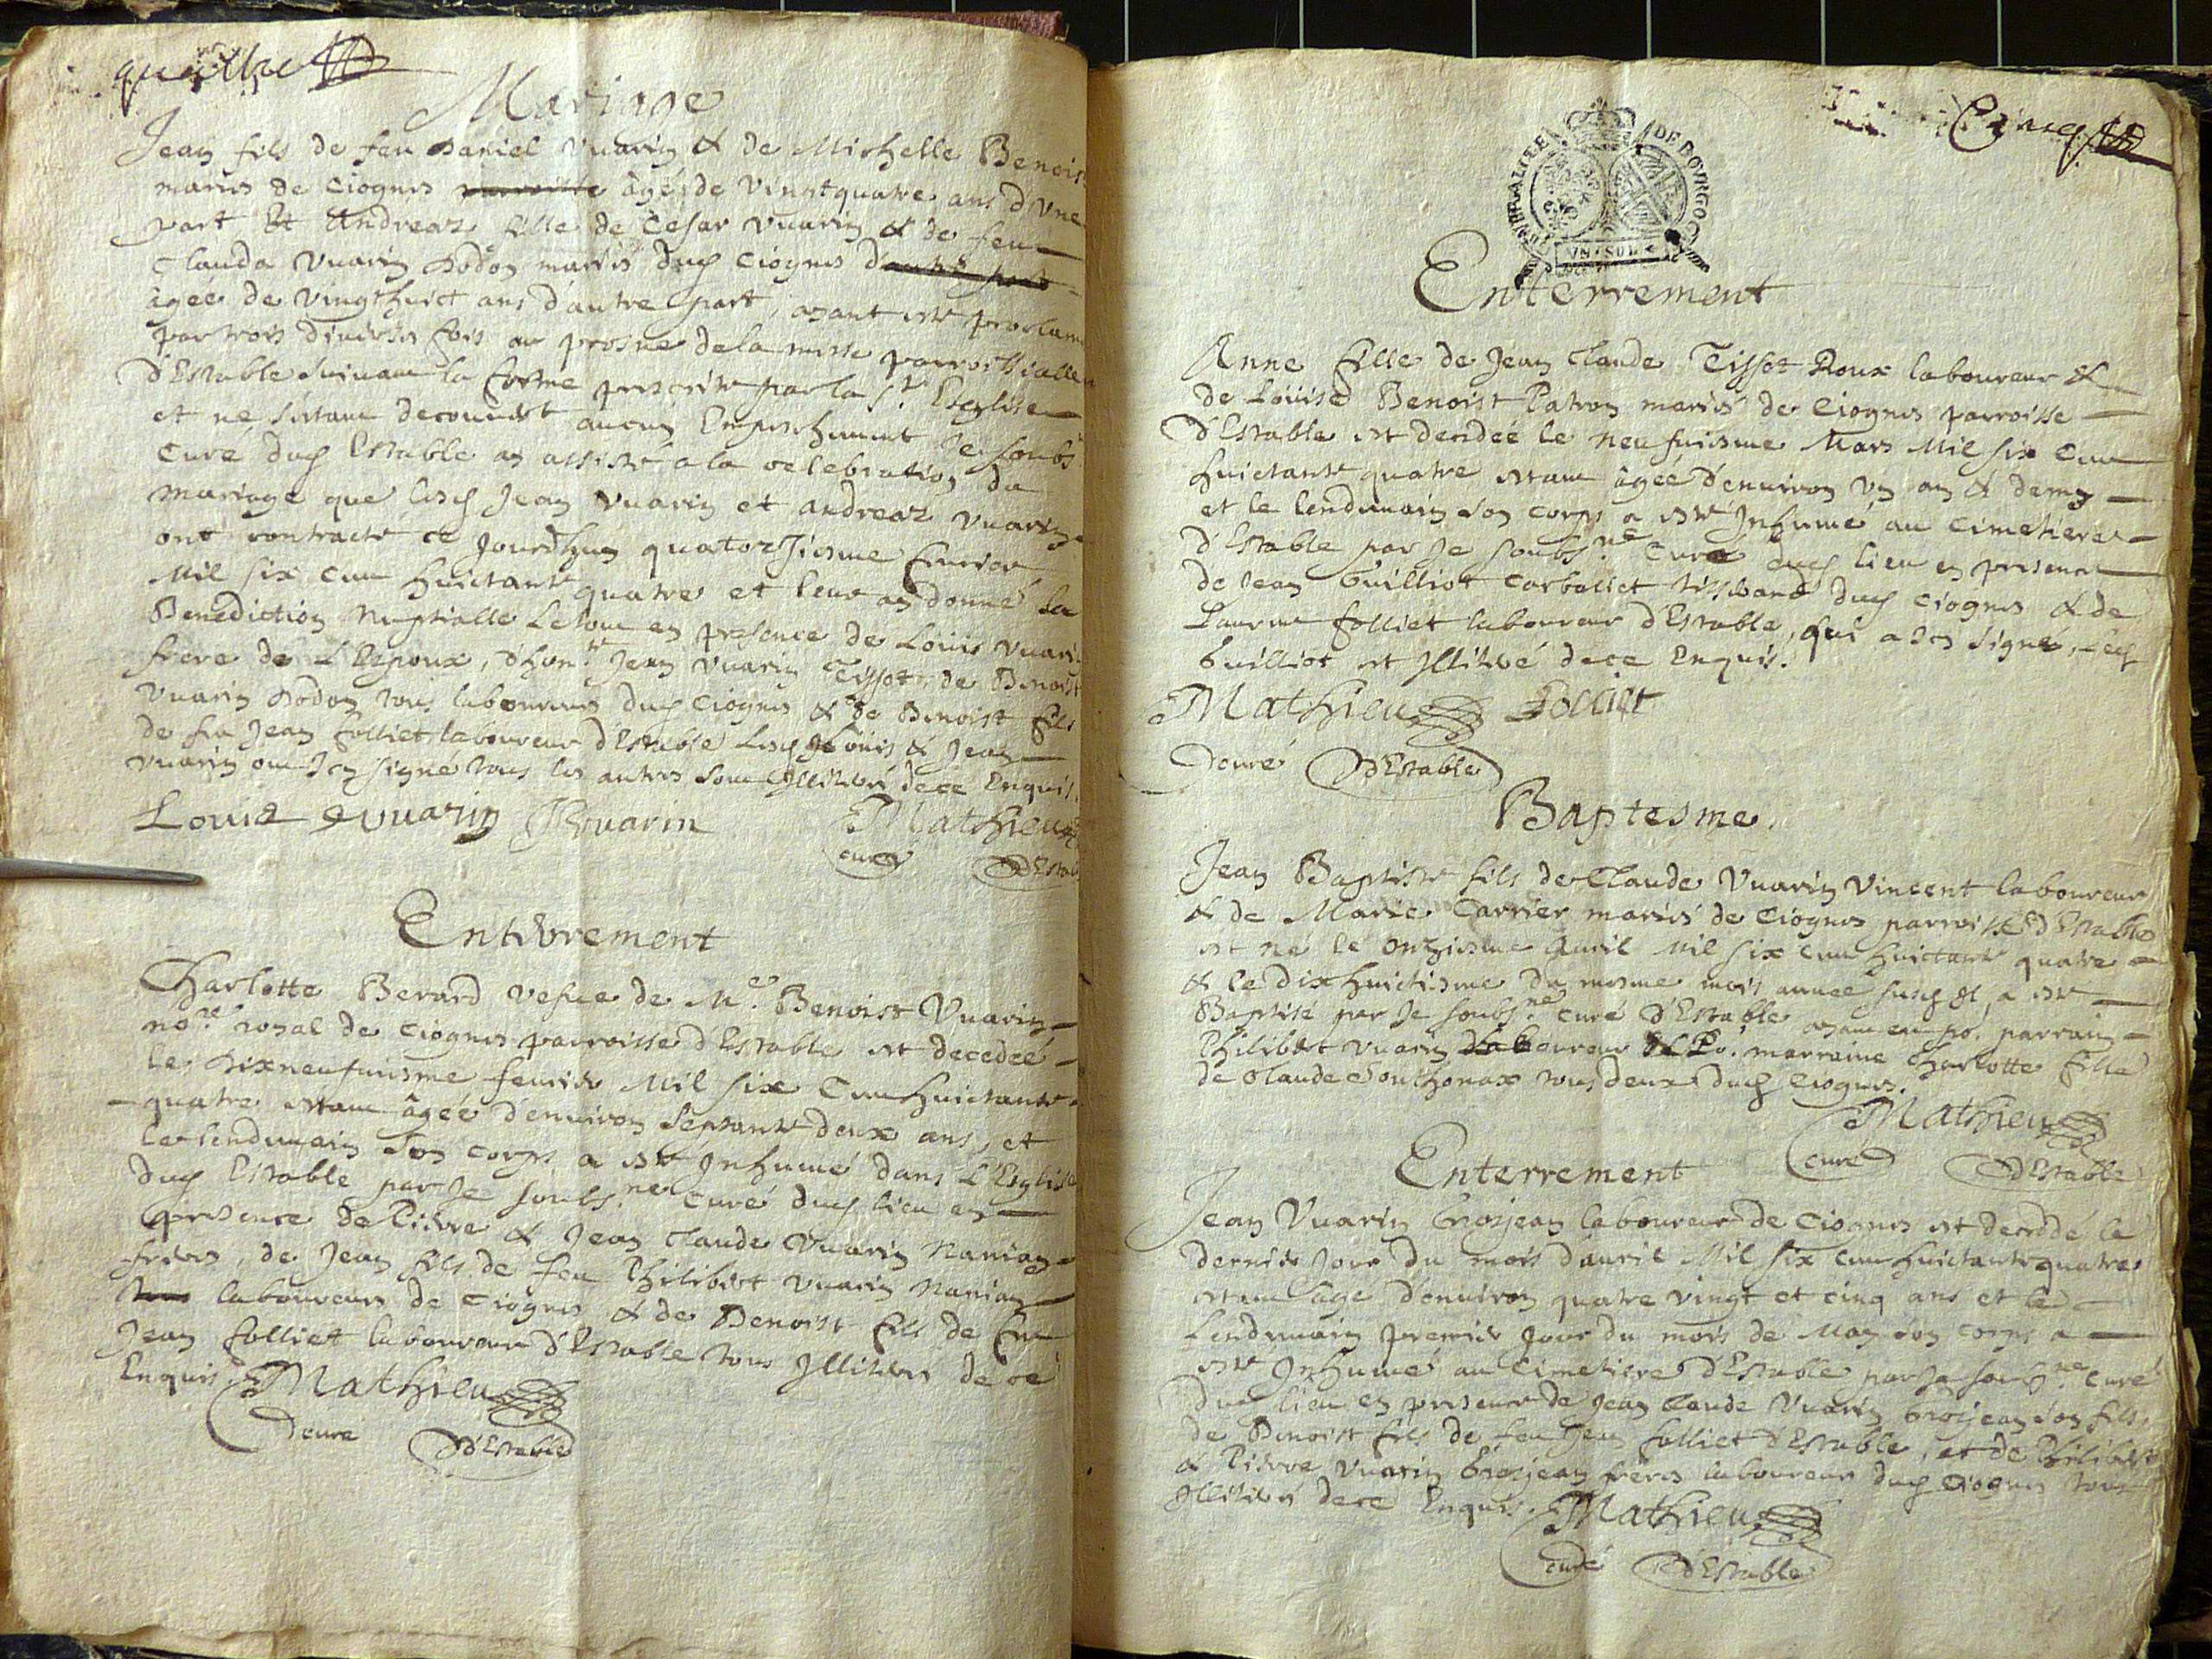 quatre
Mariage
Jean fils de feu Daniel Vuarin & de Michelle Benois
mariés de Ciognes parroisse âgé de vinntquatre ans d'vne
part Et Andreaz fille de Cesar Vuarin & de feu
Clauda Vuarin Dodon mariés dud Ciognes d'autre part
âgée de vingthuict ans d'autre part, ayant este proclam
par trois diuerses fois au prosne de la messe parroissialle
d'Estable suiuant la forme prescrite par la ste Esglise
et ne s'estant decouuert aucun Empeschement Je soubs
Curé dud Estable ay assisté a la celebration du
Mariage que lesd Jean Vuarin et Andreaz Vuarin
ont contracté ce jourdhuy quatorziesme feurier
Mil six cent huictante quatre et leur ay donné la
Benediction Nuptialle Le tout en presence de Louis Vuari
frere de L'Espoux, d'hon.te Jean Vuarin Teissot, de Benoist
Vuarin Dodon tous laboureurs dud Ciognes & de Benoist fils
de feu Jean folliet laboureur d'Estable Lesd Louis & Jean
Vuarin ont Icy signe tous les autres sont Illiteré de ce Enquis.
Louis Vuarin J Vuarin Mathieu
curé D'Estab
Enterrement
Charlotte Berard vefue de Me. Benoist Vuarin
no.re royal de Ciognes parroisse d'Estable est decedeé
le dixneufuiesme feurier Mil six Cent huictante
quatre estant âgeé d'enuiron septante deux ans, et
le lendemain son corps a esté Inhumé dans L'Esglise
dud Estable par Je soubs.né Curé dud lieu en
presence de Pierre & Jean Claude Vuarin Nanian
freres, de Jean fils de feu Philibert Vuarin Nanian
tous laboureurs de Ciognes & de Benoist fils de feu
Jean folliet laboureur d'Estable tous Illiteré de ce
Enquis. Mathieu
curé D'Estable
Cinq
GENERALITE DE BOVRGOG
VN SOL
Enterrement
Anne fille de Jean Claude Tissot Roux laboureur &
de Loüise Benoist Patron mariés de Ciognes parroisse
d'Estable est decedeé le neufuiesme Mars Mil six Cent
huictante quatre estant âgeé d'enuiron vn an & demy
et le lendemain son corps a esté Inhumé au Cimetiere
d'Estable par Je soubs.né Curé dud lieu en presence
de Jean Guilliot Carbaliet tisserand dud Ciognes & de
Laurent folliet laboureur d'Estable, qui a Icy signé, led
Guilliot est Illiteré de ce Enquis.
Mathieu Folliet
curé D'Estable
Baptesme.
Jean Baptiste fils de Claude Vuarin Vincent laboureur
& de Marie Carrier mariés de Ciognes parroisse d'Estable
est né le onziesme Auril Mil six cent huictante quatre
& le dixhuictiesme du mesme mois annee susd. a esté
Baptisé par Je soubs.né Curé d'Estable ayant eu po. parrain
Philibert Vuarin laboureur & Po. marraine Charlotte fille
de Claude Southonax tous deux dud Ciognes.
Mathieu
curé D'Estable
Enterrement
Jean Vuarin Grosjean laboureur de Ciognes est decedé le
dernier Jour du mois d'auril Mil six cent huictante quatre
estant âgé d'enuiron quatre vingt et cinq ans et le
Lendemain premier Jour du mois de May son corps a
esté Inhumé au Cimetiere d'Estable par Je soubs.né Curé
dud lieu en presence de Jean Claude Vuarin Grosjean son fils,
de Benoist fils de feu Jean folliet d'Estable, et de Philibert
& Pierre Vuarin Grosjean freres laboureurs dud Ciognes tous
Illiterés de ce Enquis. Mathieu
curé D'Estable